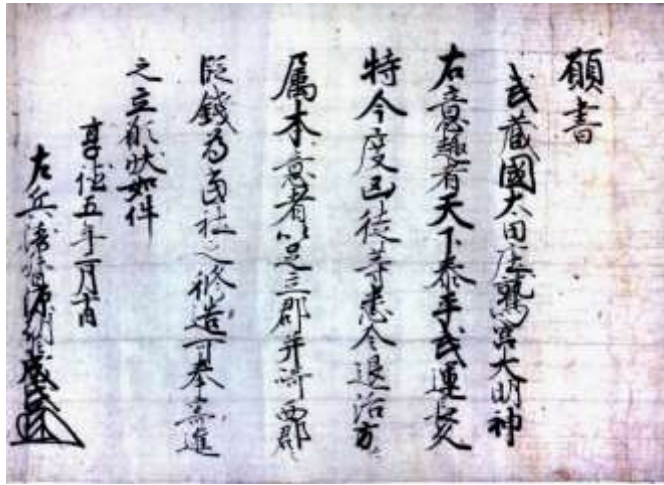 願書
武蔵國太田庄鷲宮大明神
右意趣者天下泰平武運長久
特今度凶徒等悉令退治方
属本意者以足立郡并崎西郡
段錢為当社之修造可奉寄進
之立願状如件
享徳五年一月十日
左兵衛督源朝臣成氏